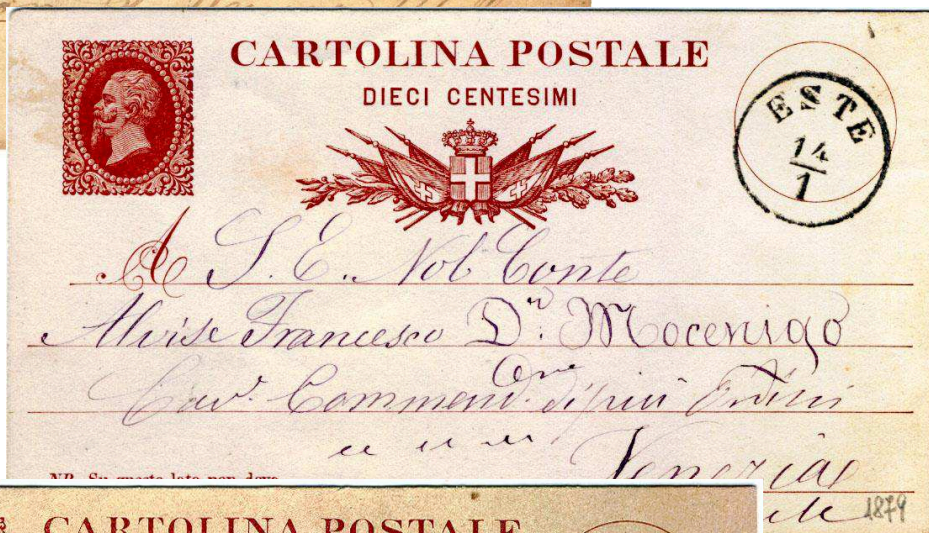 CARTOLINA POSTALE
DIECI CENTESIMI
ESTE
14
1
A S. E. Nob. Conte
Alvise Francesco Dr. Mocenigo
Cav. Commend. di più Ordini
ecc ecc ecc
Venezia
NB. Su questo lato non deve
1879
CARTOLINA POSTALE